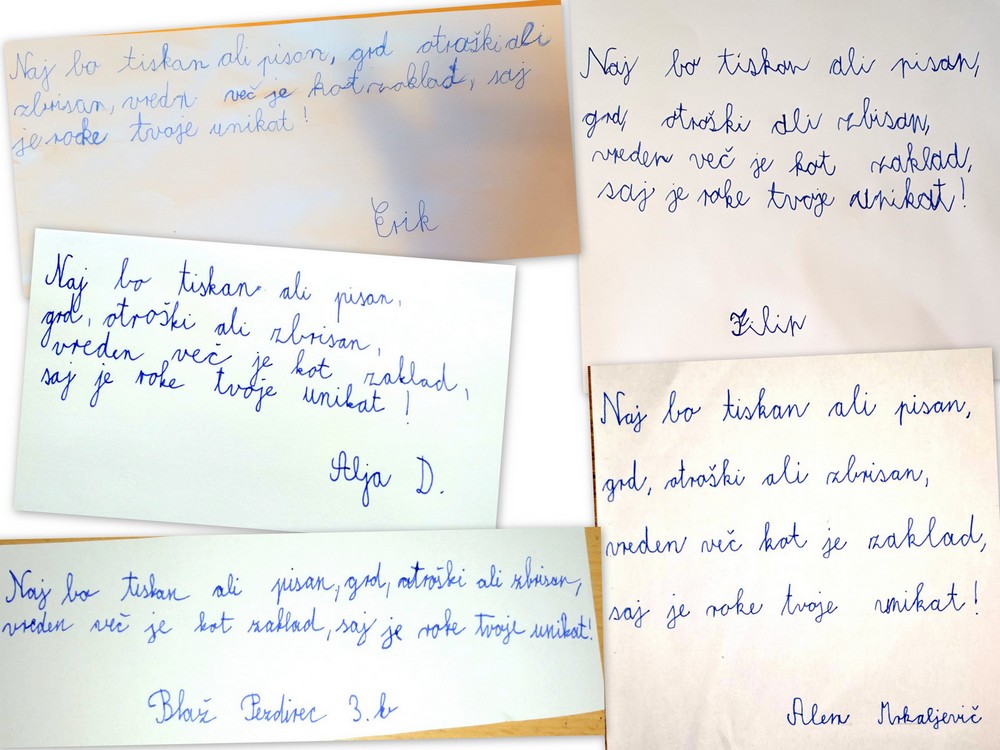 Naj bo tiskan ali pisan, grd otroški ali
zbrisan, vredn več je kot zaklad, saj
je roke tvoje unikat!
Erik
Naj bo tiskan ali pisan,
grd, otroški ali zbrisan,
vreden več je kot zaklad,
saj je roke tvoje unikat!
Filip
Naj bo tiskan ali pisan,
grd, otroški ali zbrisan,
vreden več je kot zaklad,
saj je roke tvoje unikat!
Alja D.
Naj bo tiskan ali pisan,
grd, otroški ali zbrisan,
vreden več kot je zaklad,
saj je roke tvoje unikat!
Alen Mrkaljevič
Naj bo tiskan ali pisan, grd, otroški ali zbrisan,
vreden več je kot zaklad, saj je roke tvoje unikat!
Blaž Pezdirec 3. b